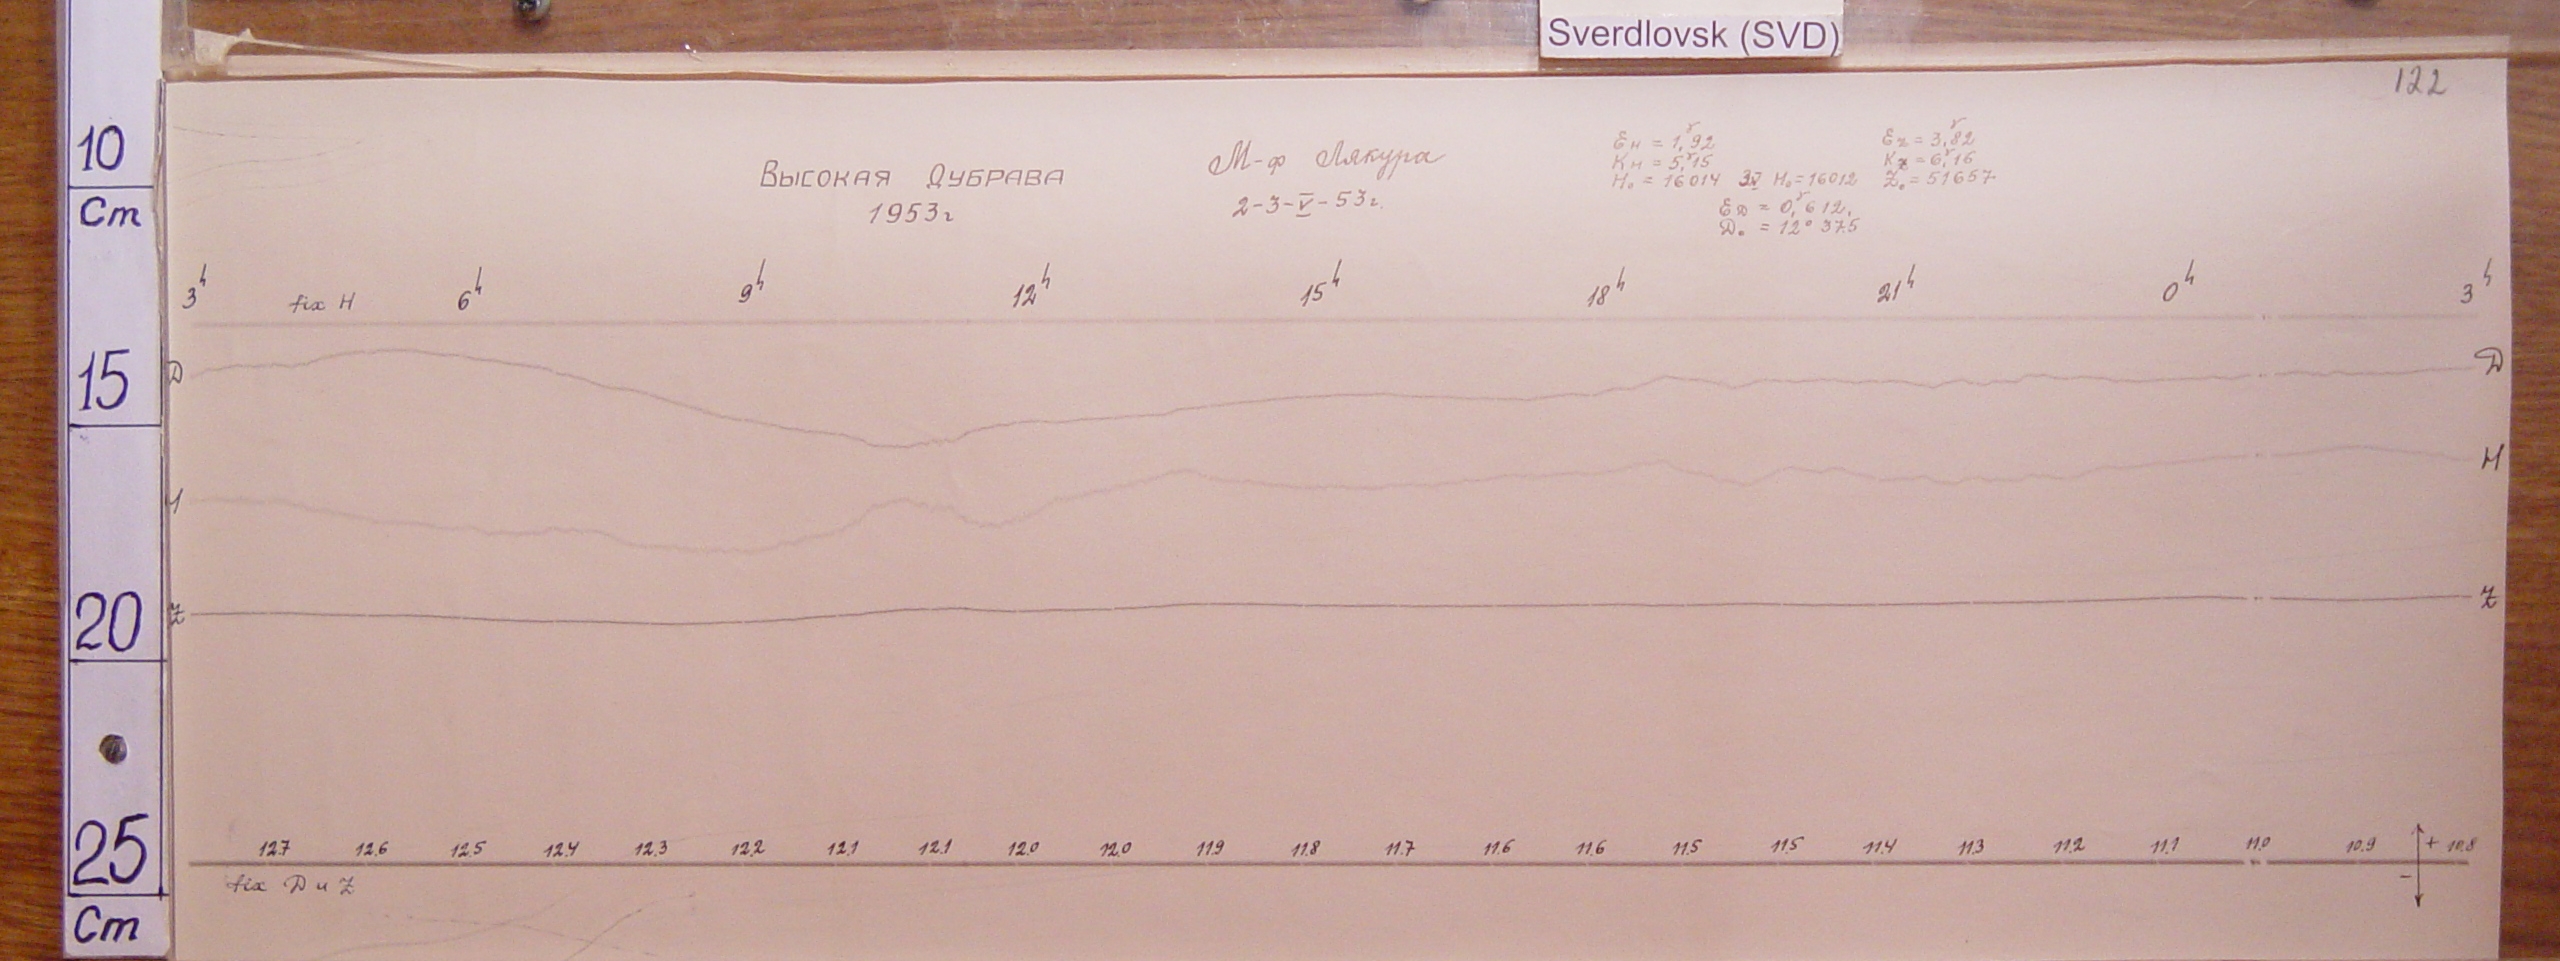 Sverdlovsk (SVD)
122
10
Cm
15
20
25
Cm
Высокая Дубрава
1953г
М-ф Лякура
2-3-V-53г.
Eн = 1,ᵞ92
Kн = 5,ᵞ15
H₀ = 16014 3V H₀=16012
Ez = 3,ᵞ82
Kz = 6,ᵞ16
Z₀ = 51657
ED = 0,ᵞ612.
D₀ = 12° 37.5
3ʰ 6ʰ 9ʰ 12ʰ 15ʰ 18ʰ 21ʰ 0ʰ 3ʰ
fix H
D D
H H
Z Z
12.7 12.6 12.5 12.4 12.3 12.2 12.1 12.1 12.0 12.0 11.9 11.8 11.7 11.6 11.6 11.5 11.5 11.4 11.3 11.2 11.1 11.0 10.9 + 10.8
-
fix D и Z